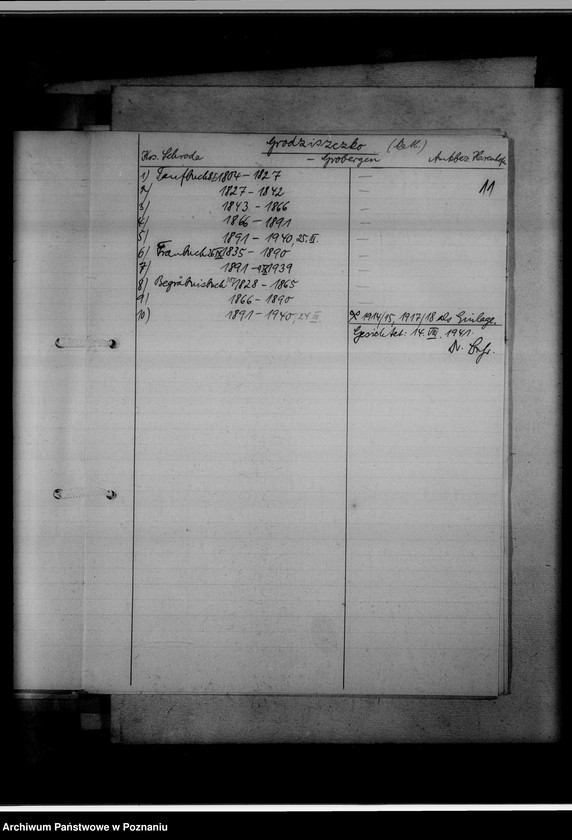 Grodziszczko (kath.)
Krs. Schroda – Grobergen Amtsbez.
11
1) Taufbuch 1804 – 1827 —
2) 1827 – 1842 —
3) 1843 – 1866 —
4) 1866 – 1891 —
5) 1891 – 1940, 25. III. —
6) Traubuch 1835 – 1890 —
7) 1891 – 1939 —
8) Begräbnisbuch 1828 – 1865 —
9) 1866 – 1890 —
10) 1891 – 1940, 24 III 1914/15, 1917/18 als Einlage.
Gesichtet: 14. VIII. 1941.
Dr.
Archiwum Państwowe w Poznaniu